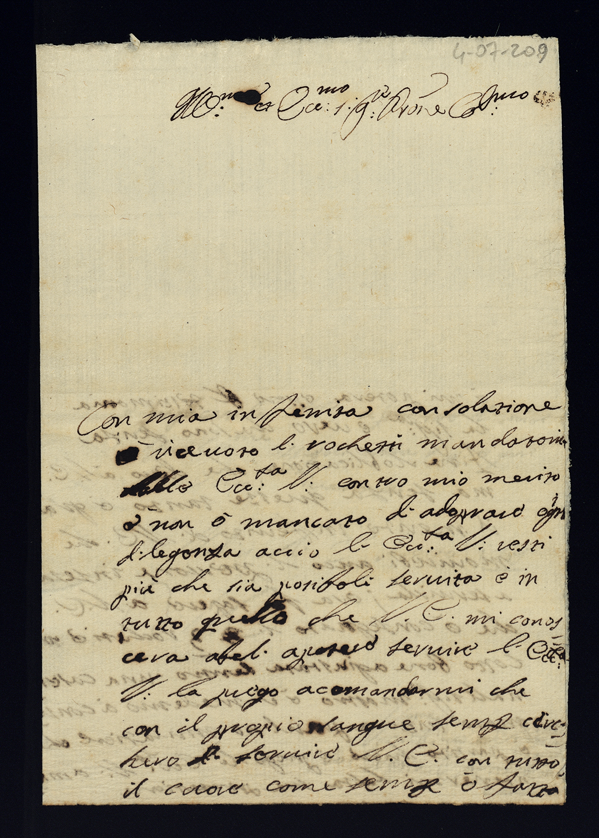 4-07-209
Ill.mo et Ecc.mo S.r g.re Prone Col.mo
Con mia infinita consolatione
ò riceuoto li rochetti mandatomi
dalla Ecc.ta V. contro mio merito
e non ò mancato di adoprare ogni
diligenza accio l' Ecc.ta V. resti
più che sia posiboli seruita e in
tutto quello che V. E. mi conos=
cera abel apotere seruire l' Ecc.ta
V. la prego acomandarmi che
con il proprio sangue semp cerc=
hero di seruire V. E. con tutto
il cuore come semp ò fatto